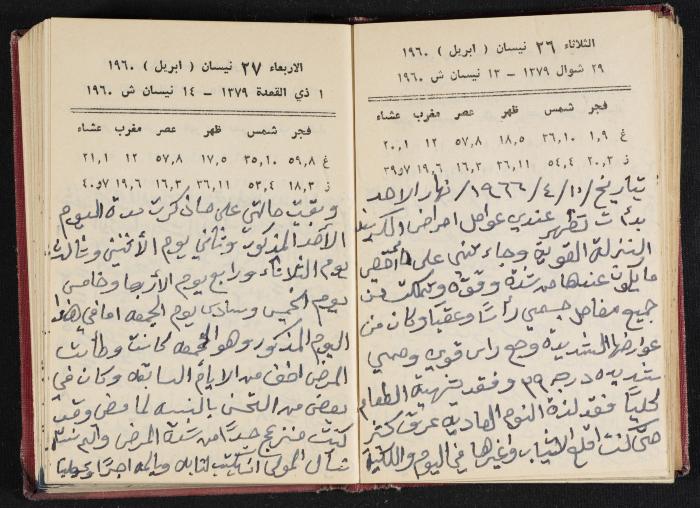 الثلاثاء ٢٦ نيسان ( ابريل ) ١٩٦٠
٢٩ شوال ١٣٧٩ – ١٣ نيسان ش ١٩٦٠
فجر شمس ظهر عصر مغرب عشاء
غ ١,٩ ٣٦,١٠ ١٨,٥ ٥٧,٨ ١٢ ٢٠,١
ز ٢٠,٣ ٥٤,٤ ٣٦,١١ ١٦,٣ ١٩,٦ ٣٩,٧
بتاريخ /١٠/٤/١٩٦٦/ نهار الاحد
بدأت تظهر عندي عوامل امراض الكريب
النزلة القوية وجاء تني على أقصى
ما يكون عندها من شدة وقوة وتملكت من
جميع مفاصل جسمي رأسا وعقبا وكان من
عوارضها الشديدة وجع راس قوي وحمى
شديده درجه ٣٩ وفقد شهية الطعام
كليا فقد لذة النوم العاديه عرق كثير
حتى كنت اقلع الثياب وغيرها في اليوم والليلة
الاربعاء ٢٧ نيسان ( ابريل ) ١٩٦٠
١ ذي القعدة ١٣٧٩ – ١٤ نيسان ش ١٩٦٠
فجر شمس ظهر عصر مغرب عشاء
غ ٥٩,٨ ٣٥,١٠ ١٧,٥ ٥٧,٨ ١٢ ٢١,١
ز ١٨,٣ ٥٣,٤ ٣٦,١١ ١٦,٣ ١٩,٦ ٤٠,٧
وبقيت حالتي على ما ذكرت مدة اليوم
الأحد المذكور وثاني يوم الأثنين وثالث
يوم الثلاثاء ورابع يوم الأربعا وخامس
يوم الخميس وسادس يوم الجمعه اما في هذا
اليوم المذكور وهو الجمعه كانت وطأت
المرض اخف من الايام السابقه وكان في
بعض من التحسن بالنسبه لما مضى وقد
كنت منزعج جدا من شدة المرض والم
نسأل المولى ان يكتب لنا به وبالمه اجرا